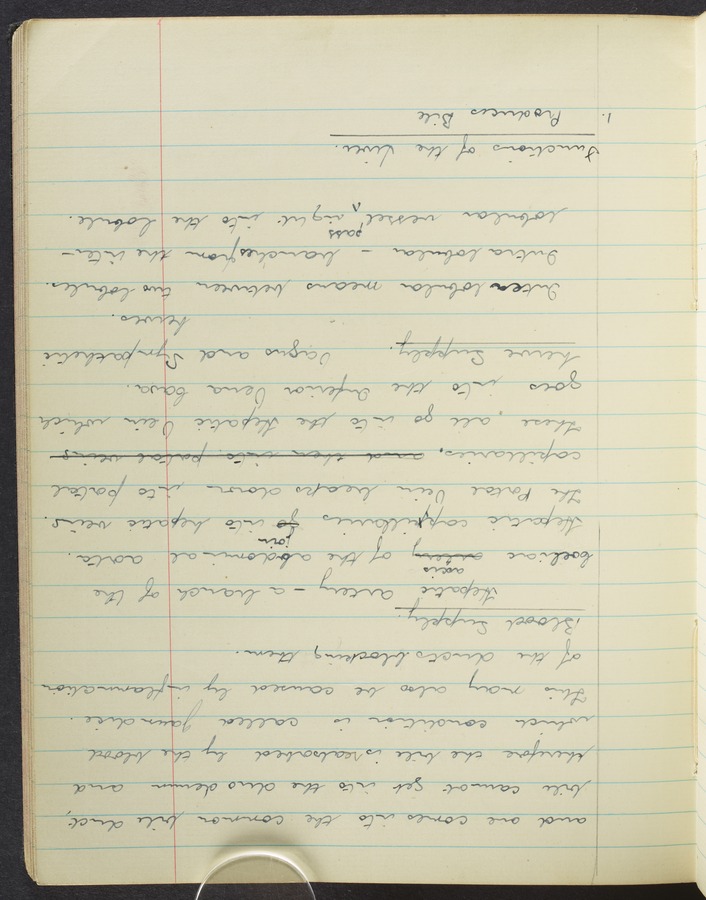 and one comes into the common bile duct,
bile cannot get into the duodemun and
therefore the bile is reabsorbed by the blood
which condition is called jaundice.
This may also be caused by inflammation
of the ducts blocking them.
Blood Supply.
Hepatic artery - a branch of the
axis
coeliac artery of the abdominal aorta.
join
Hepatic capillaries go into hepatic veins.
The Portal Vein breaks down into portal
capillaries, and then into portal veins
these, all go into the Hepatic Vein which
goes into the Inferior Vena Cava.
Nerve Supply. Vagus and Sympathetic
nerves.
Inter lobular means between two lobules.
Intra lobular - branches from the inter-
pass
lobular vessel, right into the lobule.
Functions of the Liver.
1. Produces Bile